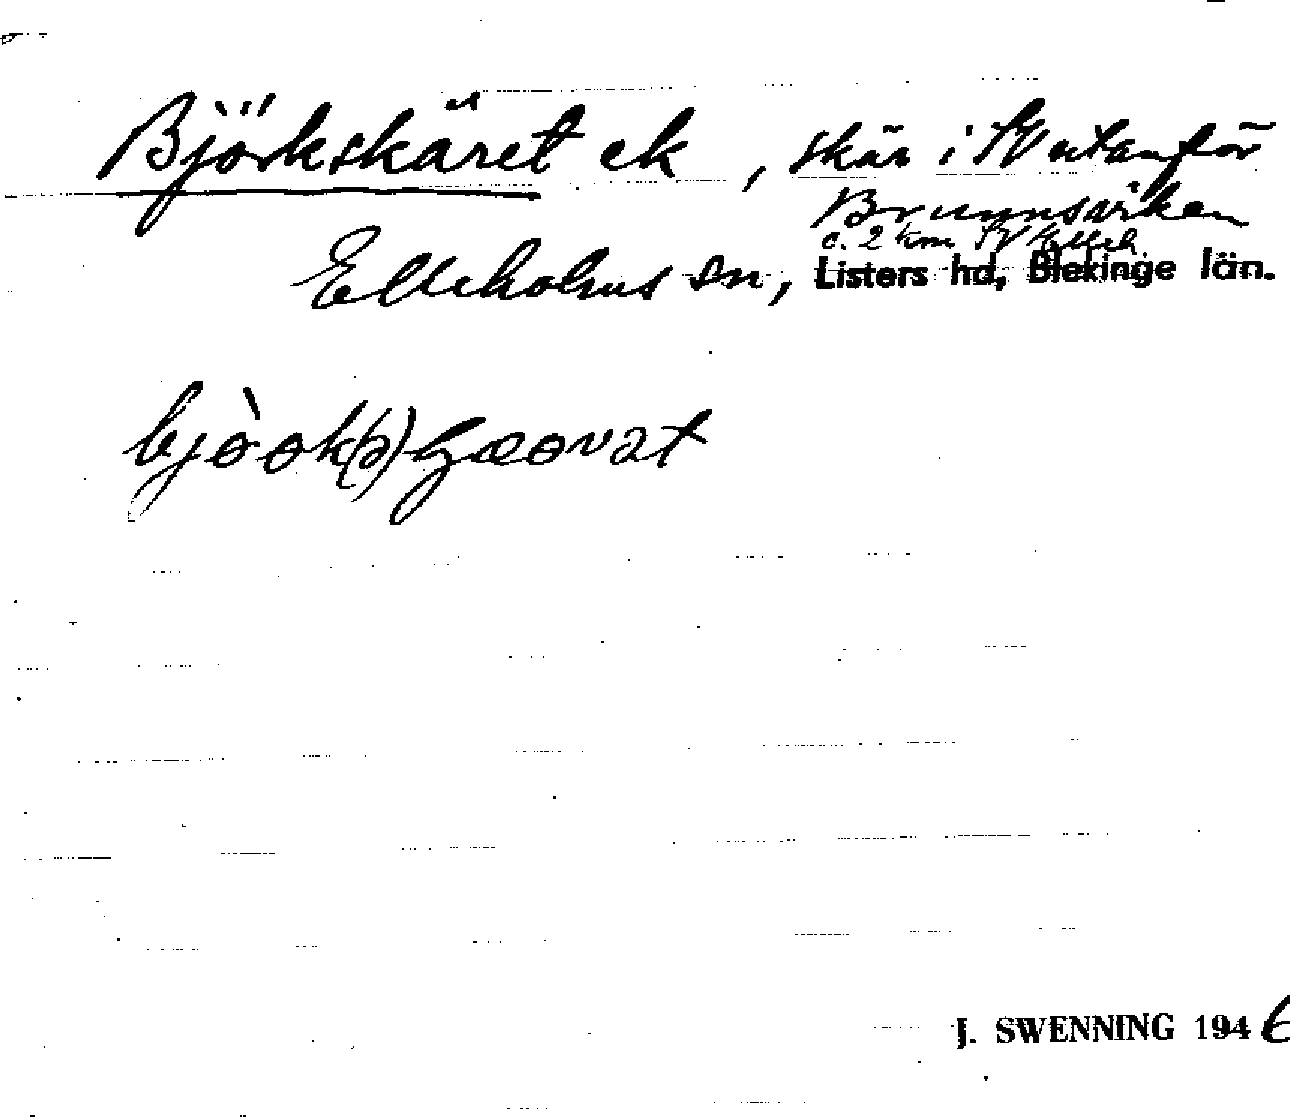 Björkskäret ek, skär i SV utanför
Brunnsviken
c. 2 km SV Elleh.
Elleholms sn, Listers hd, Blekinge län.
J. SWENNING 1946